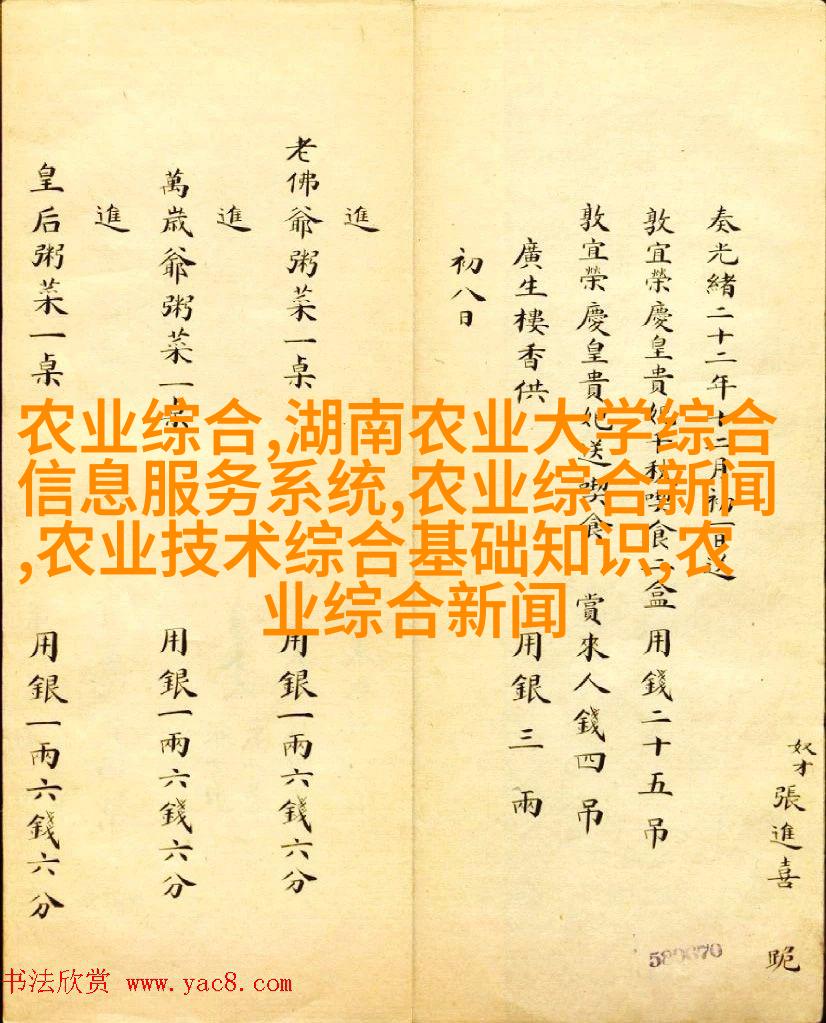 奴才張進喜 跪
奏光緒二十二年十二月初一日起
敦宜榮慶皇貴妃千秋喫食二盒 用錢二十五吊
敦宜榮慶皇貴妃送喫食 賞來人錢四吊
廣生樓香供 用銀三兩
初八日
進
老佛爺粥菜一桌 用銀一兩六錢六分
進
萬歲爺粥菜一桌 用銀一兩六錢六分
進
皇后粥菜一桌 用銀一兩六錢六分
农业综合,湖南农业大学综合
信息服务系统,农业综合新闻
,农业技术综合基础知识,农
业综合新闻
580670
书法欣赏 www.yac8.com